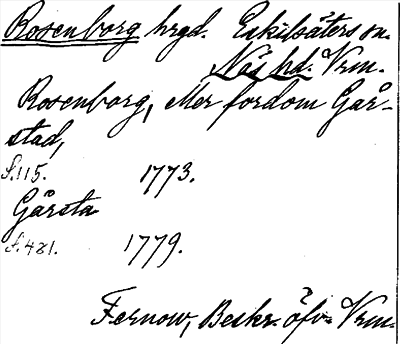 Rosenborg hrgd. Eskilsäters sn.
Näs hd. Vrm.
Rosenborg, eller fordom Går-
stad,
s. 115. 1773.
Gårsta
s. 481. 1779.
Fernow, Beskr. öfv. Vrm.